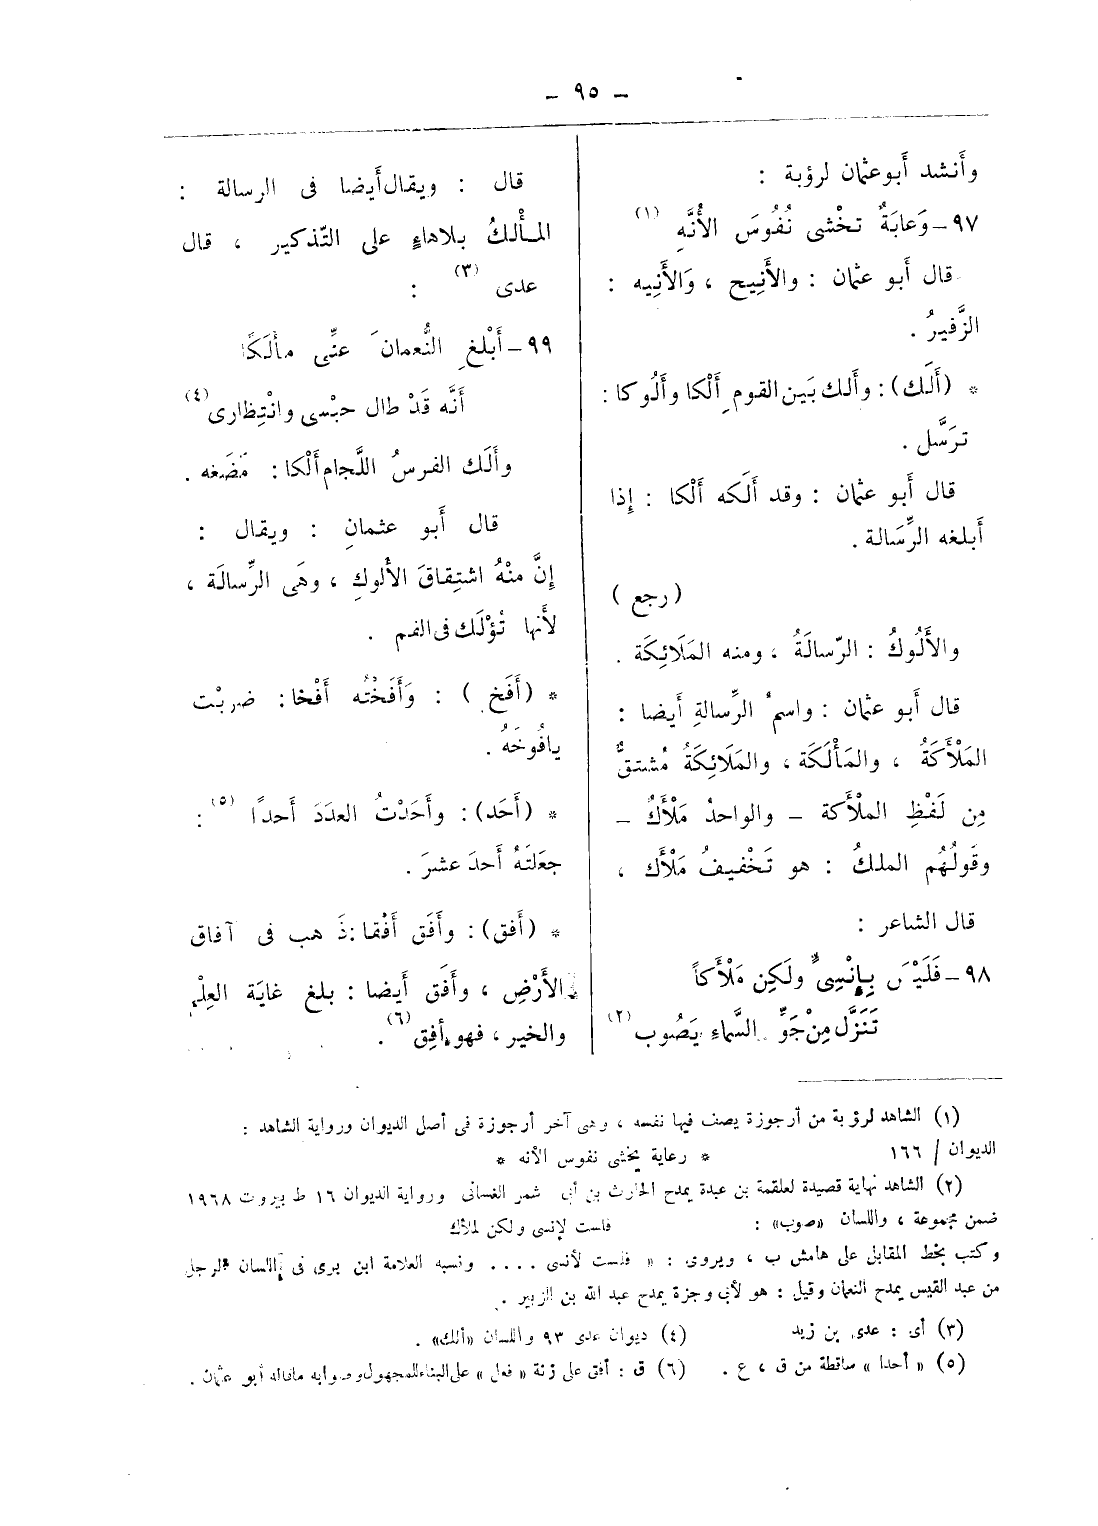 – ٩٥ –
وأَنشد أَبوعثمان لرؤبة :
٩٧ – وَعَابَةٌ تخْشى نُفُوسَ الأُنَّهِ (١)
قال أَبو عثمان : والأَنِيح ، وَالأَنِيه :
الزَّفيرُ .
* (أَلَك) : وأَلك بَين القوم أَلْكا وأَلُوكا :
ترَسَّل .
قال أَبو عثمان : وقد أَلَكه أَلْكا : إِذا
أَبلغه الرِّسَالة .
(رجع)
والأَلُوكُ : الرّسالَةُ ، ومنه المَلَائِكَة .
قال أَبو عثمان : واسمُ الرِّسالةِ أَيضا :
المَلْأَكَةُ ، والمَأْلَكَة ، والمَلَائِكَةُ مُشتقٌّ
مِن لَفْظِ الملْأَكة – والواحدُ مَلْأَكٌ –
وقَولُهُم الملكُ : هو تَخْفيفُ مَلْأَك ،
قال الشاعر :
٩٨ – فَلَيْسَ بِإِنْسِىٍّ ولَكِن مَلْأَكاً
تَنَزَّل مِنْ جَوِّ السَّماءِ يَصُوب (٢)
قال : ويقال أَيضا فى الرسالة :
المأْلكُ بلاهاءٍ على التّذكير ، قال
عدى (٣) :
٩٩ – أَبْلغِ النُّعمانَ عنِّى مأْلَكًا
أَنَّه قَدْ طال حبْسى وانْتِظارى (٤)
وأَلَك الفرسُ اللَّجام أَلْكا : مَضَغه .
قال أَبو عثمانِ : ويقال :
إِنَّ منْهُ اشتِقاقَ الأَلوكِ ، وهَى الرِّسالَة ،
لأَنها تُؤْلَك فى الفم .
* (أَفَخ) : وَأَفَخْتُه أَفْخا : ضربْت
يافُوخَهُ .
* (أَحَد) : وأَحَدْتُ العدَدَ أَحدًا (٥) :
جعَلتَهُ أَحدَ عشرَ .
* (أَفق) : وأَفَق أَفْقا : ذَهب فى آفاق
الأَرْضِ ، وأَفَق أَيضا : بلغ غايَة العِلْم
والخير ، فهو أَفِق (٦) .
(١) الشاهد لرؤبة من أرجوزة يصف فيها نفسه ، وهى آخر أرجوزة فى أصل الديوان ورواية الشاهد :
الديوان / ١٦٦ * رعاية يخشى نفوس الأنه *
(٢) الشاهد نهاية قصيدة لعلقمة بن عبدة يمدح الحارث بن أبى شمر الغسانى ورواية الديوان ١٦ ط بيروت ١٩٦٨
ضمن مجموعة ، واللسان «صوب» : فلست لإنسى ولكن لملأك
وكتب بخط المقابل على هامش ب ، ويروى : « فلست لأنسى .... ونسبه العلامة ابن برى فى اللسان لرجل
من عبد القيس يمدح النعمان وقيل : هو لأبى وجزة يمدح عبد الله بن الزبير .
(٣) أى : عدى بن زيد (٤) ديوان عدى ٩٣ واللسان «ألك» .
(٥) « أحدا » ساقطة من ق ، ع . (٦) ق : أفق على زنة « فعل » على البناء للمجهول وصوابه ماقاله أبو عثمان .